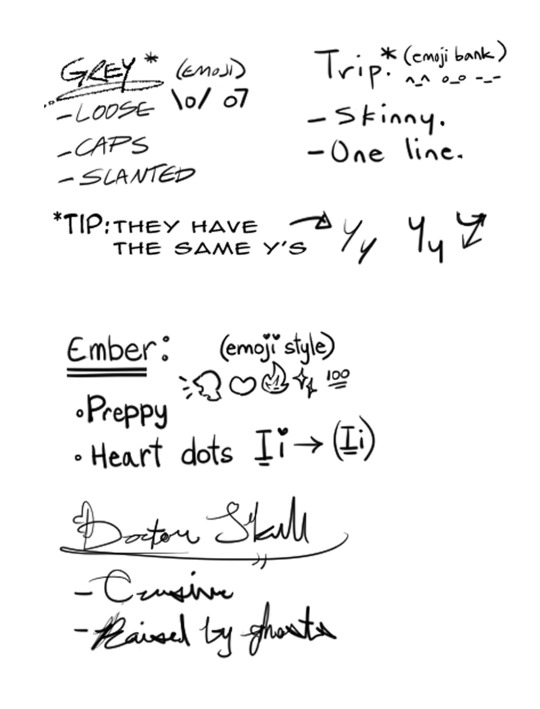 GREY * (EMOJI)
- LOOSE \o/ o7
- CAPS
- SLANTED
Trip. * (emoji bank)
^_^ o_o -_-
- Skinny.
- One line.
*TIP: THEY HAVE
THE SAME Y'S → Yy Yy
Ember: (emoji style)
100
◦ Preppy
◦ Heart dots Ii → (Ii)
Doctor Skull
- Cursive
- Raised by ghosts